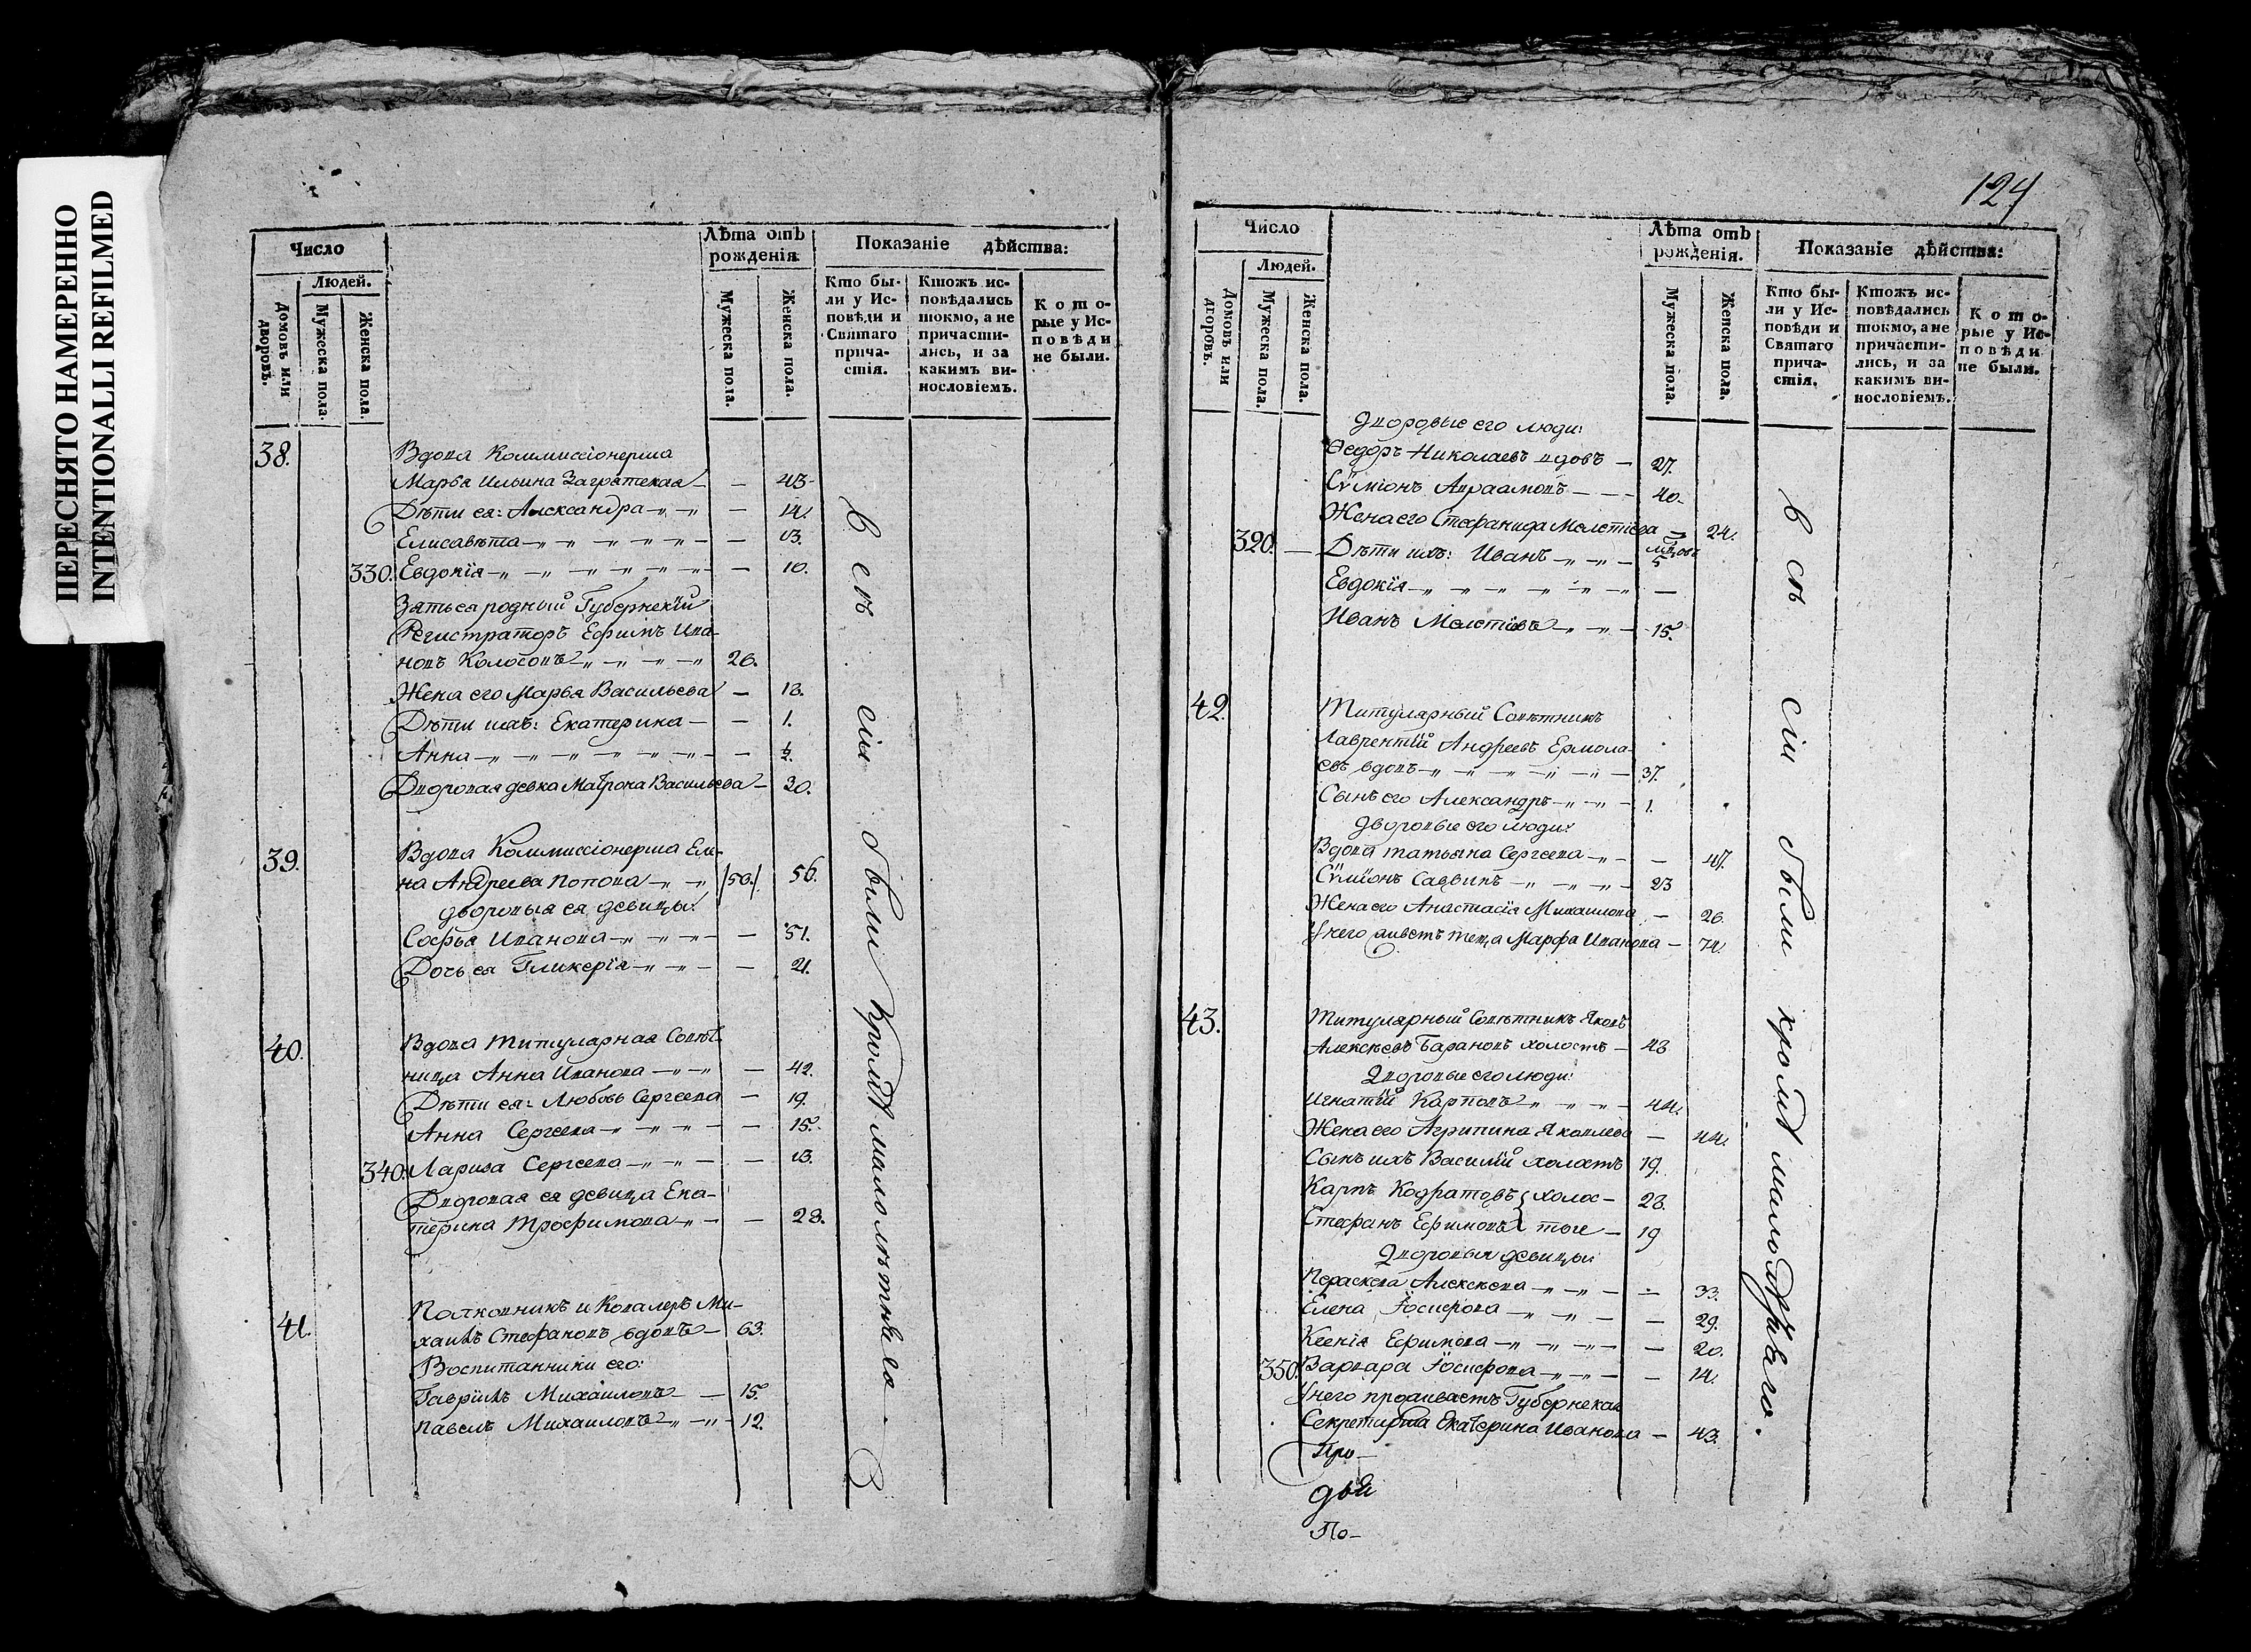 ПЕРЕСНЯТО НАМЕРЕННО
INTENTIONALLI REFILMED
Число
Людей.
Домовъ или дворовъ.
Мужеска пола.
Женска пола.
Лѣта отъ рожденія
Мужеска пола.
Женска пола.
Показаніе дѣйства:
Кто бы-
ли у Ис-
повѣди и
Святаго
прича-
стія.
Ктожъ ис-
повѣдались
токмо, а не
причасти-
лись, и за
какимъ ви-
нословіемъ.
Кото-
рые у Ис-
повѣди
не были.
38. Вдова Коммиссіонерша
Марья Ильина — — 43
Дѣти ея: Александра — — 14.
Елисавета — — 13.
330. Евдокія — — 10.
Зять ея родный Губернскій
Регистраторъ Ефимъ Ива-
новъ Колосовъ — 26.
Жена его Марья Васильева — 18.
Дѣти ихъ: Екатерина — — 1.
Анна — — ½.
Дворовая девка Матрона Васильева — 20.
39. Вдова Коммиссіонерша Еле-
на Андреева Попова — /50./ 56.
дворовыя ея девицы:
Софья Иванова — — 51.
Дочь ея Гликерія — — 21.
40. Вдова Титулярная Совѣт-
ница Анна Иванова — — 42.
Дѣти ея: Любовь Сергеева — 19.
Анна Сергеева — — 15.
340. Лариса Сергеева — — 13.
Дворовая ея девица Ека-
терина Трофимова — — 28.
41. Полковникъ и Кавалеръ Ми-
хаилъ Стефановъ вдовъ — 63.
Воспитанники его:
Гавріилъ Михаиловъ — 15.
Павелъ Михаиловъ — 12.
Всѣ сіи были кромѣ малолѣтняго.
124
Число
Людей.
Домовъ или дворовъ.
Мужеска пола.
Женска пола.
Лѣта отъ рожденія.
Мужеска пола.
Женска пола.
Показаніе дѣйства:
Кто бы-
ли у Ис-
повѣди и
Святаго
прича-
стія.
Ктожъ ис-
повѣдались
токмо, а не
причасти-
лись, и за
какимъ ви-
нословіемъ.
Кото-
рые у Ис-
повѣди
не были.
Дворовые его люди:
Ѳедоръ Николаевъ вдовъ — 27.
Сѵмїонъ Авраамовъ — 40.
Жена его Стефанида Мелетіева — 24.
320. — Дѣти ихъ: Иванъ — 5
Евдокія — —
Иванъ Мелетіевъ — 15.
42. Титулярный Совѣтникъ
Лаврентій Андреевъ Ермола-
евъ вдовъ — 37.
Сынъ его Александръ — 1.
дворовые его люди:
Вдова татьяна Сергеева — — 47.
Сѵмїонъ Саввинъ — 23
Жена его Анастасія Михаилова — 26.
У него живетъ теща Марфа Иванова — 74.
43. Титулярный Совѣтникъ Яковъ
Алексѣевъ Барановъ холостъ — 48
Дворовые его люди:
Игнатій Карповъ — 44.
Жена его Агрипина Яковлева — 44.
Сынъ ихъ Василій холостъ 19.
Карпъ Кодратовъ } холос- 28.
Стефанъ Ефимовъ } тые — 19
Дворовыя девицы:
Параскева Алексѣева — — 33.
Елена Іосифова — — 29.
Ксенія Ефимова — — 20.
350. Варвара Іосифова — — 14.
У него проживаетъ Губернская
Секретарша Екатерина Иванова — 43.
Всѣ сіи были кромѣ малолѣтняго.
Про-
дьи
По-